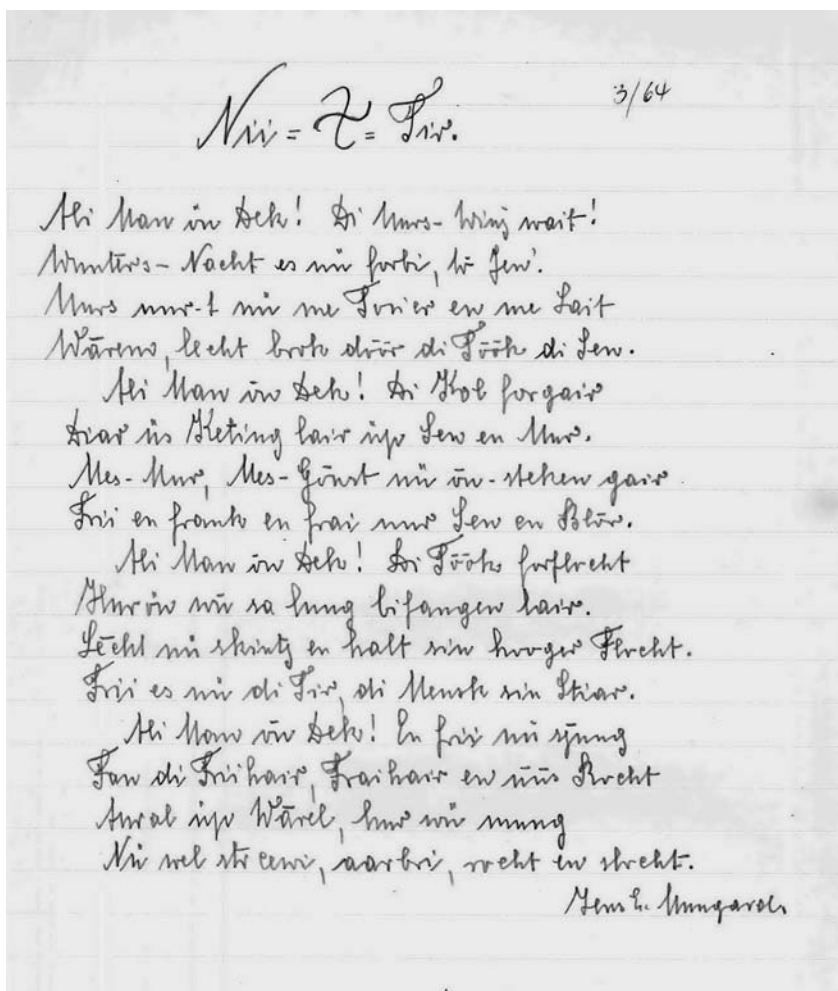 Nii = = Tir. 3/64
Ali Man ön Dek! Di Uurs-Winj wait!
Wunters-Nacht es nü forbi, tö Jen'.
Uurs uur-t nü me en me Lait
lecht brok döör di Töök di Sen.
Ali Man ön Dek! Di Kol forgair
Diar üs Keting lair üp Sen en Mur.
Mes-Mur, Mes-Gönst nü ön-steken gair
Frii en frank en frai uur Sen en Blör.
Ali Man ön Dek! Di Töök forflocht
Hurön wü sa lung bifangen lair.
Lecht nü skintj en halt sin hooger Flocht.
Frii es nü di Tir, di Mensk sin Stiar.
Ali Man ön Dek! En frii nü sjung
Fan di Friihair, Fraihair en üüs Rocht
Aural üp Wārel, hur wü mung
Nü wel strewi, aarbri, rocht en slocht.
Jens E. Mungard.